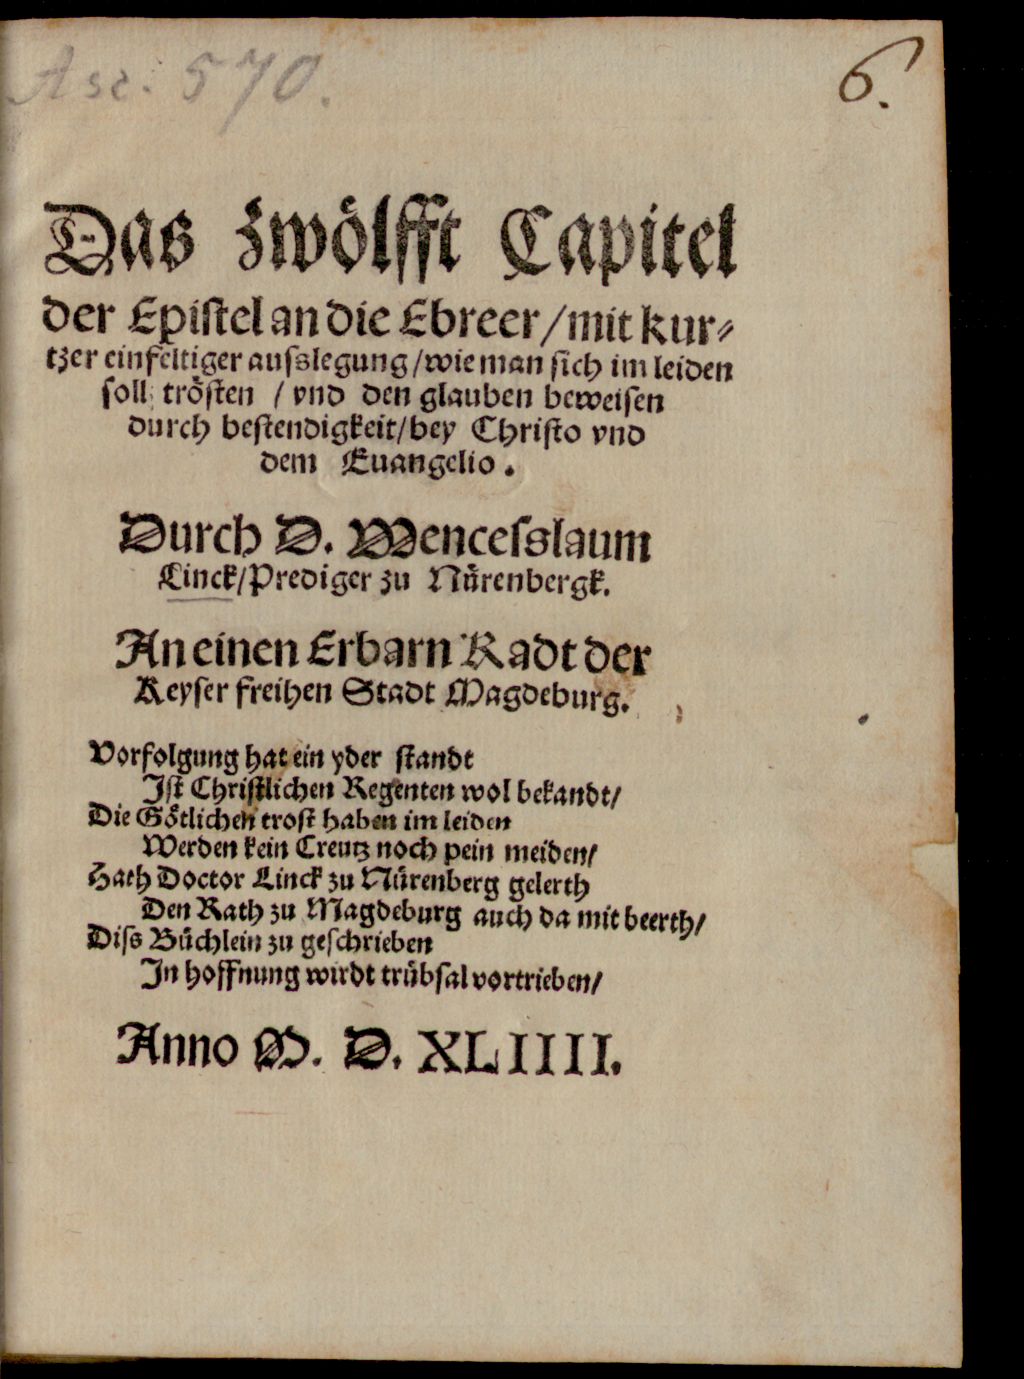 Asc: 570.
6.
Das zwölfft Capitel
der Epistel an die Ebreer / mit kur⸗
tzer einfeltiger ausslegung / wie man sich im leiden
soll trösten / vnd den glauben beweisen
durch bestendigkeit / bey Christo vnd
dem Euangelio.
Durch D. Wencesslaum
Linck / Prediger zu Nürenbergk.
An einen Erbarn Radt der
Keyser freihen Stadt Magdeburg.
Vorfolgung hat ein yder standt
Ist Christlichen Regenten wol bekandt /
Die Götlichen trost haben im leiden
Werden kein Creutz noch pein meiden /
Hath Doctor Linck zu Nürenberg gelerth
Den Rath zu Magdeburg auch da mit beerth /
Diss Büchlein zu geschrieben
In hoffnung wirdt trübsal vortrieben /
Anno M. D. XLIIII.